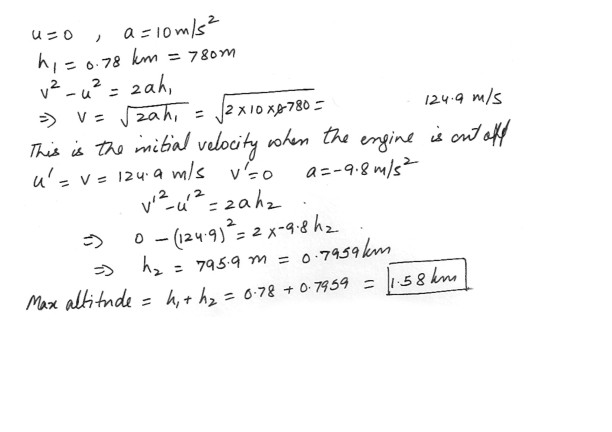 u = 0 , a = 10 m/s²
h₁ = 0.78 km = 780m
v² - u² = 2ah,
⇒ v = √2ah₁ = √2 x 10 x 780 = 124.9 m/s
This is the initial velocity when the engine is cut off
u' = v = 124.9 m/s v' = 0 a = -9.8 m/s²
v'² - u'² = 2ah₂ .
⇒ 0 - (124.9)² = 2 x -9.8 h₂
⇒ h₂ = 795.9 m = 0.7959 km
Max altitude = h₁ + h₂ = 0.78 + 0.7959 = 1.58 km